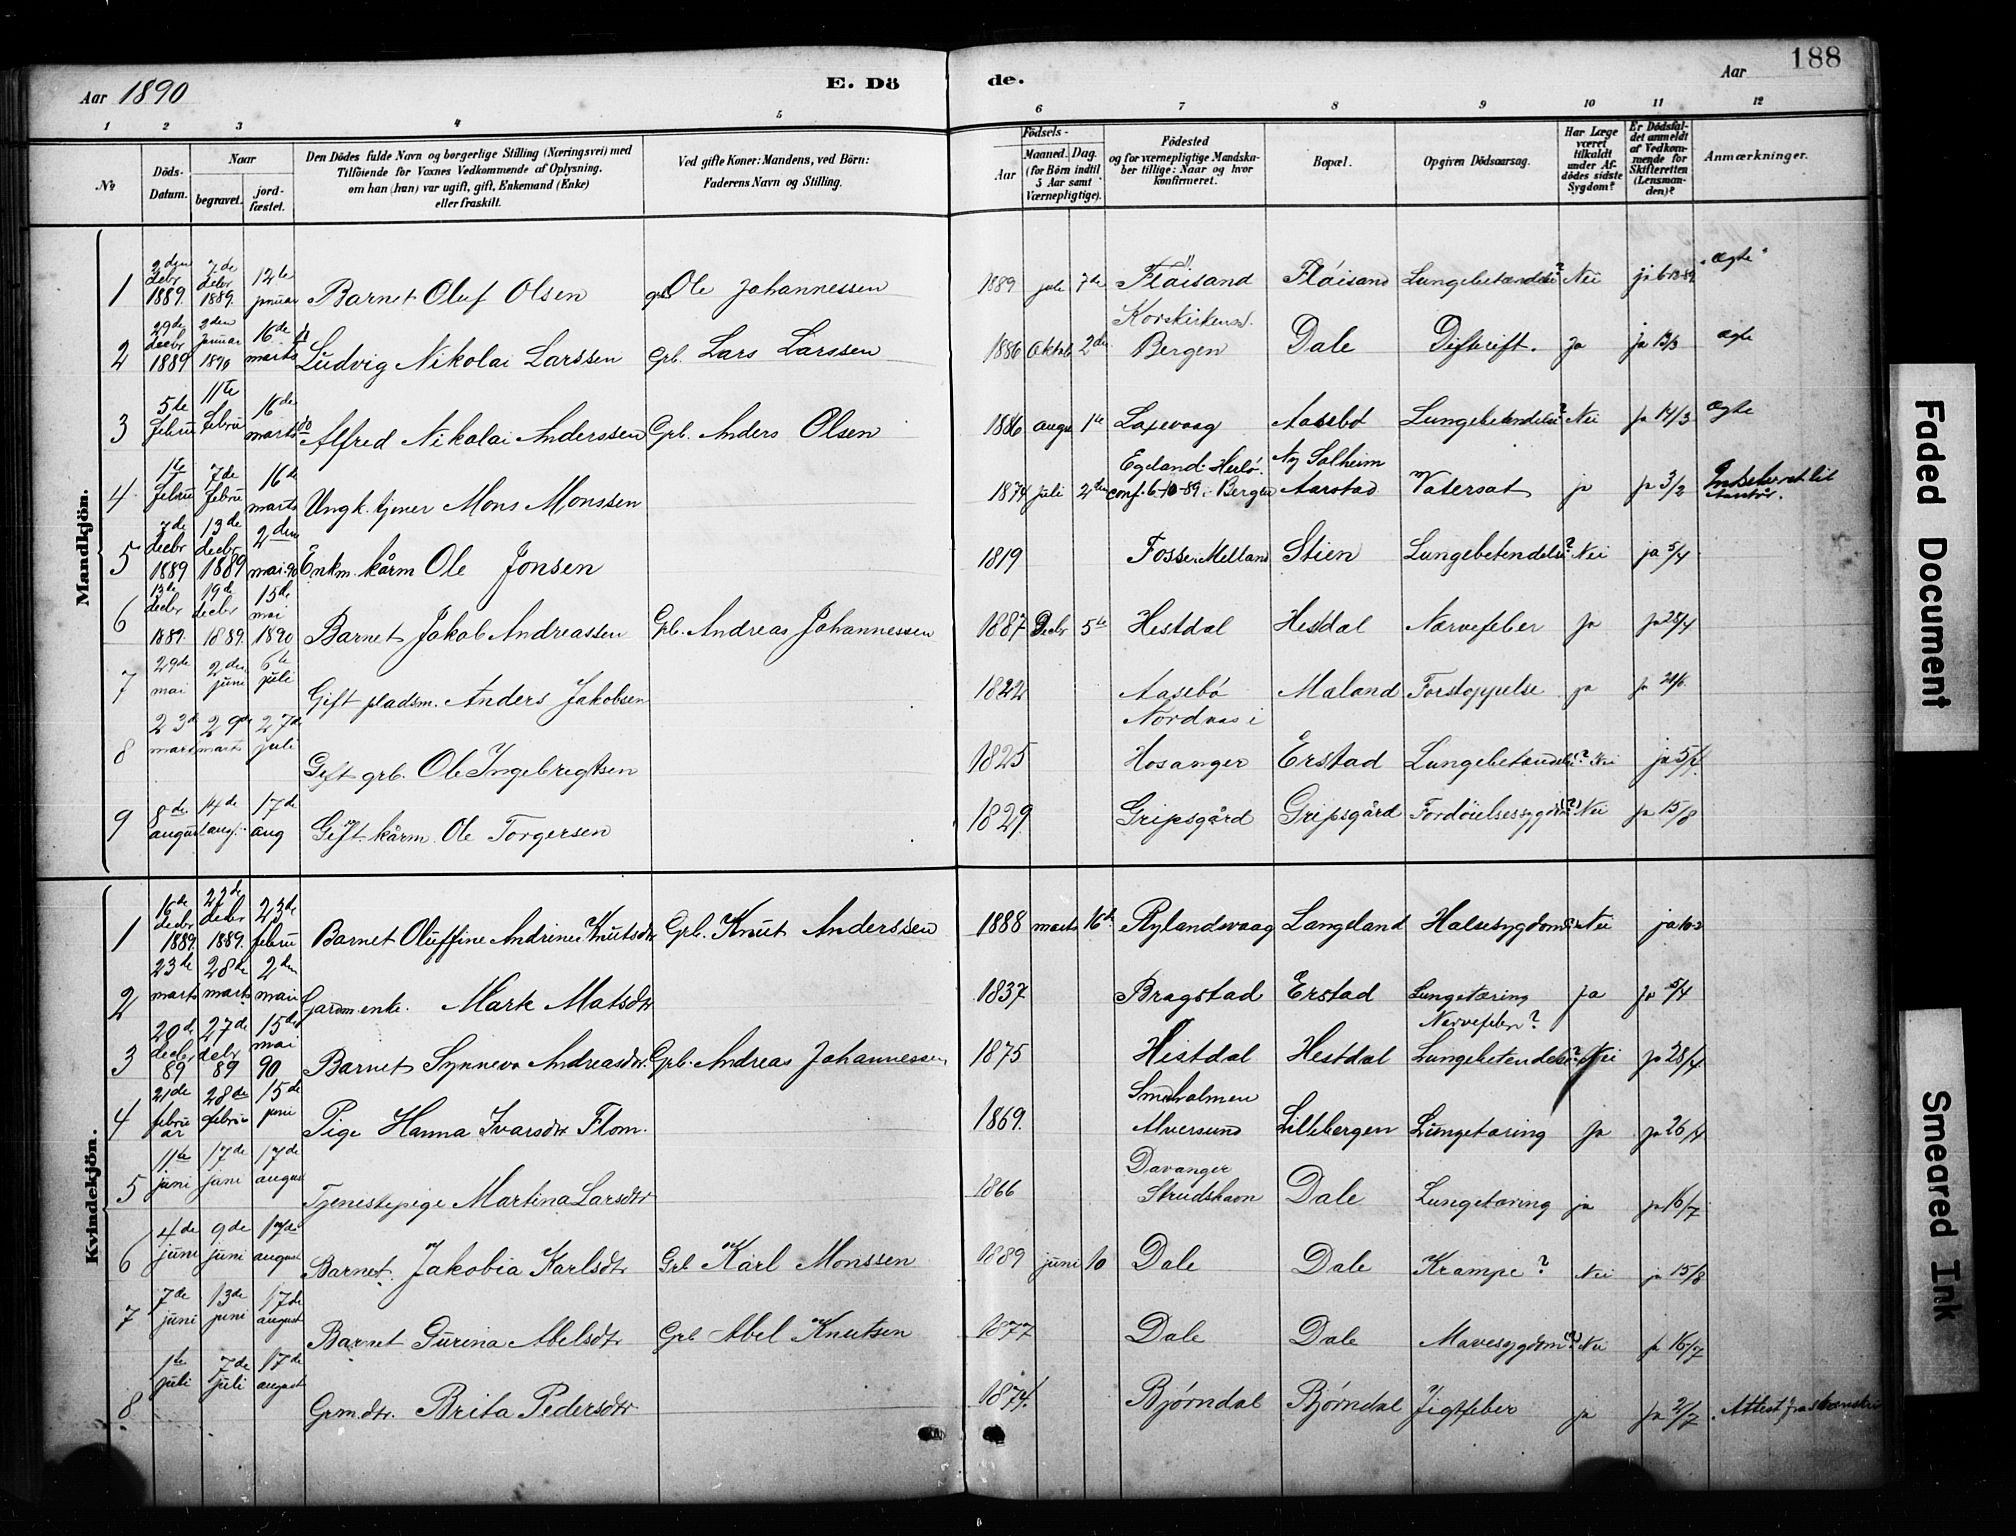 Aar 1890
E. Dö
de.
Aar
188
1 2 3 4 5 6 7 8 9 10 11 12
№
Döds-Datum.
Naar
begravet.
jord-fæstet.
Den Dödes fulde Navn og borgerlige Stilling (Næringsvei) med
Tilföiende for Voxnes Vedkommende af Oplysning,
om han (hun) var ugift, gift, Enkemand (Enke)
eller fraskilt.
Ved gifte Koner: Mandens, ved Börn:
Faderens Navn og Stilling.
Födsels-
Aar
Maaned. Dag.
(for Börn indtil
5 Aar samt
Værnepligtige).
Födested
og for værnepligtige Mandska-
ber tillige: Naar og hvor
konfirmeret.
Bopæl.
Opgiven Dödsaarsag.
Har Læge
været
tilkaldt
under Af-
dödes sidste
Sygdom?
Er Dödsfal-
det anmeldt
af Vedkom-
mende for
Skifteretten
(Lensman-
den)?
Anmærkninger.
Mandkjön.
1 2den decbr 1889. 7de decbr 1889. 12te januar Barnet Oluf Olsen grb. Ole Johannessen 1889 juli 7de Fløisand Fløisand Lungebetændelse? Nei ja 6-12-89 "ægte"
2 29de decbr 1889 2den januar 1890 16de marts Ludvig Nikolai Larssen Grb. Lars Larssen 1886 Oktob 2den Korskirkens Bergen Dale Difterift. Ja ja 13/3 ægte
3 5te febru 11te febru 16de marts do Alfred Nikolai Anderssen Grb. Anders Olsen 1886 augu 1te Laxevaag Aasebø Lungebetændelse? Nei ja 14/3 ægte
4 1te febru 7de febru 16de marts Ungk. tjener Mons Monssen 1874 juli 2den Egeland: Herlø. conf. 6-10-89 i Bergen Ny Solheim Aarstad Vatersot ja ja 3/2
5 7de decbr 1889 13de decbr 1889 2den mai 90 Enkm. kårm Ole Jonsen 1819 Fosse i Melland Stien Lungebetendelse? Nei ja 5/4
6 13de decbr 1889. 19de decbr 1889. 15de mai 1890 Barnet Jakob Andreassen Grb. Andreas Johannessen 1887 Decbr 5te Hestdal Hestdal Nervefeber Ja ja 28/4
7 29de mai 2den juni 6te juli Gift pladsm. Anders Jakobsen 1822 Aasebø Maland Forstoppelse ja ja 20/6
8 23de marts 29de marts 27de juli Gift grb. Ole Ingebregtsen 1825 Nordnes i Hosanger Erstad Lungebetændelse? Nei ja 5/4
9 8de august 14de aug. 17de aug Gift kårm. Ole Torgersen 1829. Gripsgård Gripsgård Fordøielsessygdom(?) Nei ja 15/8
Kvindekjön.
1 16de decbr 1889. 22de decbr 1889. 23de febru Barnet Oluffine Andrine Knutsdtr Grb. Knut Anderssen 1888 marts 16de Rylandsvaag Langeland Halsesygdom Nei ja 10-2
2 23de marts 28de marts 2den mai Gardm enke. Marte Matsdtr 1837 Bragstad Erstad Lungetæring Ja ja 5/4
3 20de decbr 89 27de decbr 89 15de mai 90 Barnet Synneva Andreasdtr. Grb. Andreas Johannessen 1875 Hestdal Hestdal Nervefeber? Lungebetendelse? Nei ja 28/4
4 21de februar 28de februar 15de juni Pige Hanna Ivarsdtr Flom. 1869. Smeholmen Alversund Lillebergen Lungetæring Ja ja 26/4
5 11te juni 17de juni 17de august Tjenestepige Martina Larsdtr 1866 Davanger Strudshavn Dale Lungetæring ja ja 16/7
6 4de juni 9de juni 17de august Barnet. Jakobia Karlsdtr Grb Karl Monssen 1889 juni 10 Dale Dale Krampe? Nei ja 15/8
7 7de juni 13de juni 17de august Barnet Gurina Abelsdtr Grb Abel Knutsen 1877 Dale Dale Mavesygdom(?) Nei ja 16/7
8 1te juli 7de juli 17de august Grm dtr. Brita Pedersdtr 1874. Bjørndal Bjørndal Gigtfeber ja ja 2/7 Attest fra
Faded Document
Smeared Ink